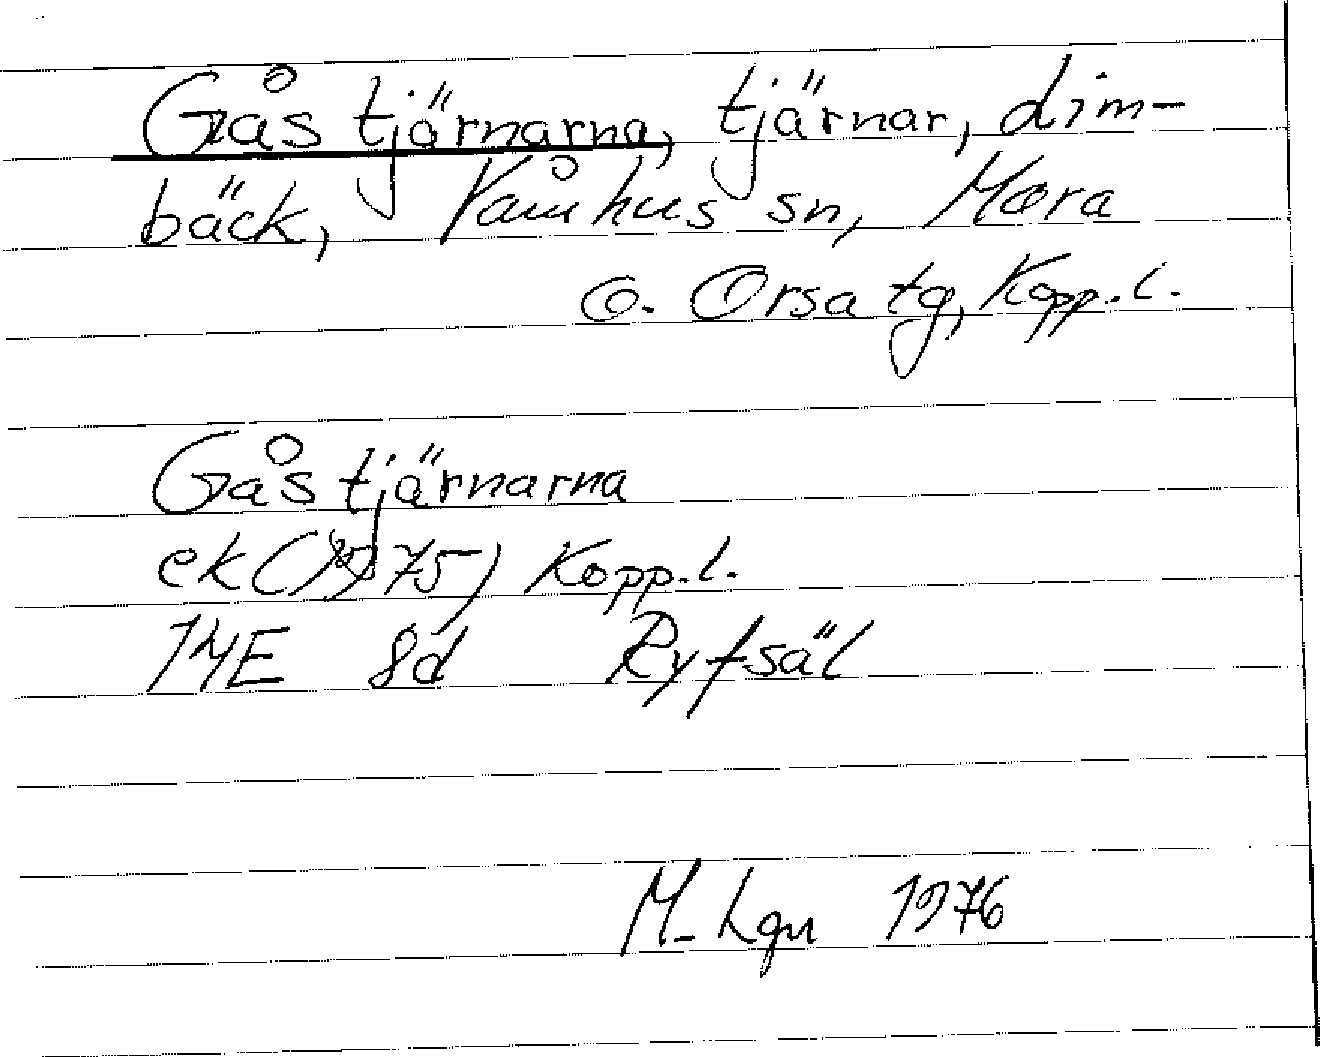 Gåstjärnarna, tjärnar, Lim-
bäck, Våmhus sn, Mora
o. Orsa tg, Kopp.l.
Gåstjärnarna
ek (1975) Kopp.l.
14E 8d Ryfsäl
M. Lgn 1976